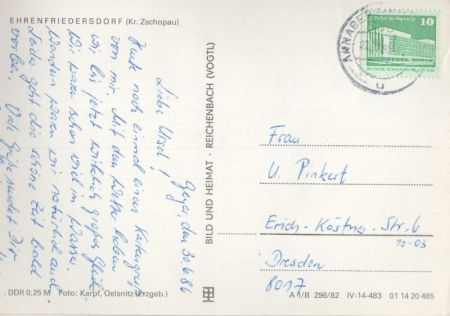 EHRENFRIEDERSDORF (Kr. Zschopau)
Geyer, den 30.6.86
Liebe Ursel!
Heute noch einmal einen Kartengruß
von mir. Mit dem Wetter haben
wir bis jetzt wirklich großes Glück.
Wir waren schon viel im Wasser.
Wandern waren wir natürlich auch.
Leider geht die schöne Zeit bald
vorbei.
Viele Grüße sendet Dir
BILD UND HEIMAT · REICHENBACH (VOGTL)
DDR 0,25 M Foto: Karpf, Oelsnitz (Erzgeb.)
10
Palast der Republik
ANNABE
u
Frau
U. Pinkert
Erich-Kästner-Str. 6
10-03
Dresden
8017
A 1/B 296/82 IV-14-483 01 14 20 485